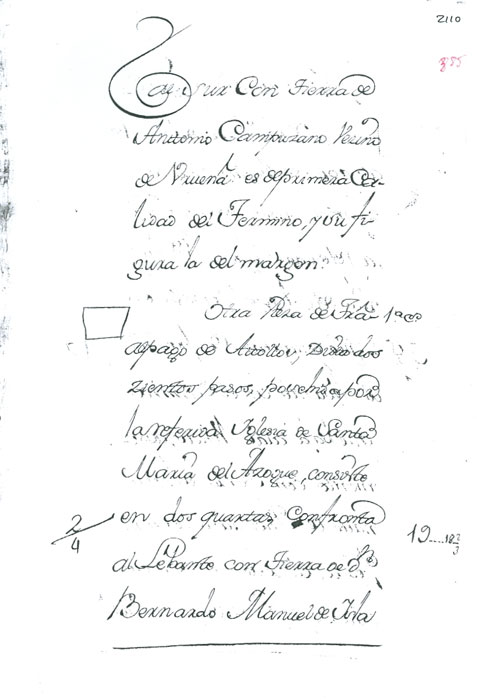 2110
385
al sur Con Tierra de
Antonio Campuzano Vecino
de Urueña es de primera Ca-
lidad del Termino, y su fi-
gura la del margen.
Otra Pieza de Tra. 1ª Cª
al pago de dista dos
zientos pasos, pertenece por
la referida Yglesia de Santa
Maria del Azogue, consiste
2/4 en dos quartas Confronta
al Lebante con Tierra de Dn.
Bernardo Manuel de Isla
19